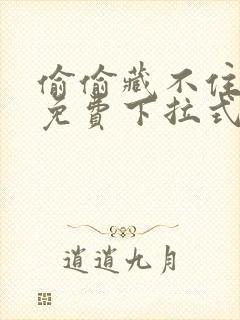 偷偷藏不住
免費下拉式
逍遥九月